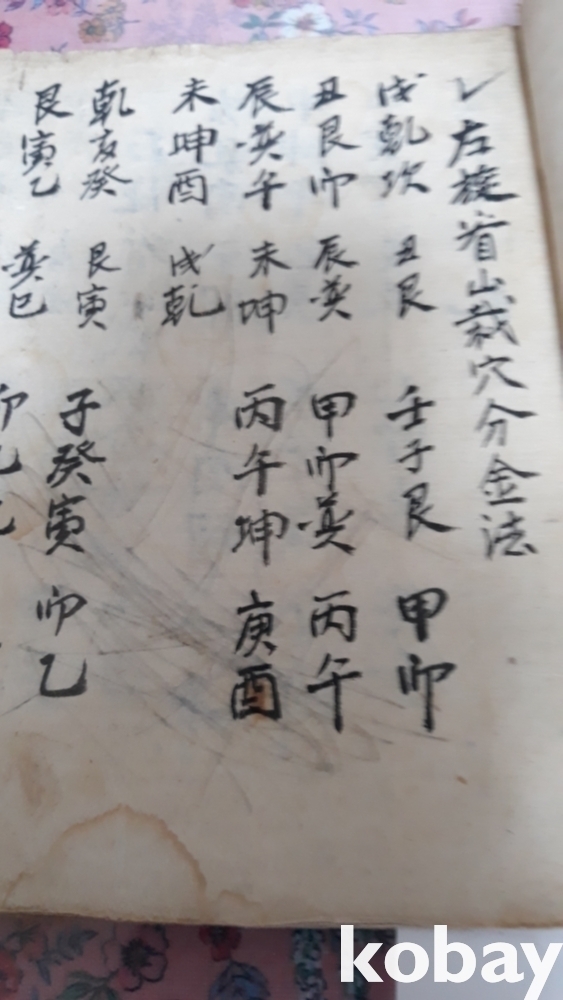 左旋省山裁穴分金法
戌乾坎 丑艮 壬子艮 甲卯
丑艮卯 辰巽 甲卯巽 丙午
辰巽午 未坤 丙午坤 庚酉
未坤酉 戌乾
乾亥癸 艮寅 子癸寅 卯乙
艮寅乙 巽巳
kobay